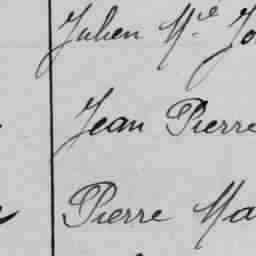 Julien M.el Jo
Jean Pierre
Pierre Ma